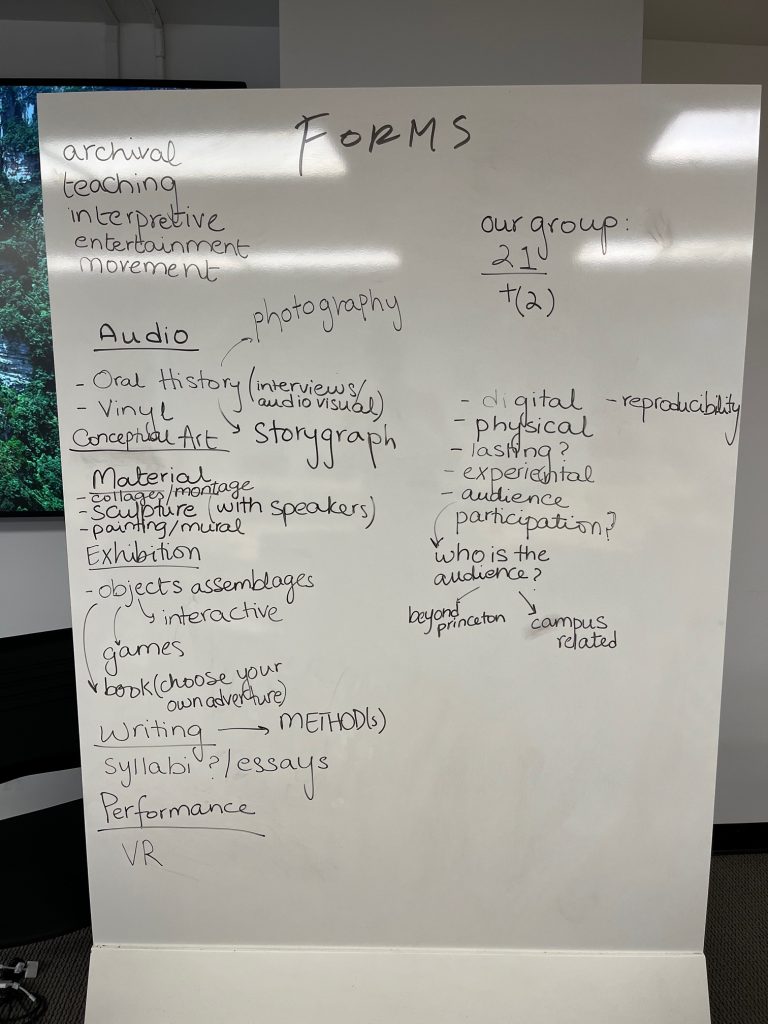 FORMS
archival
teaching
interpretive
entertainment
movement
our group:
21
+(2)
photography
Audio
- Oral History (interviews/
audiovisual)
- Vinyl
Storygraph
Conceptual Art
Material
- collages/montage
- sculpture (with speakers)
- painting/mural
Exhibition
- objects assemblages
interactive
games
book (choose your
own adventure)
Writing → METHOD(s)
syllabi?/essays
Performance
VR
- digital - reproducibility
- physical
- lasting?
- experiential
- audience
participation?
who is the
audience?
beyond
princeton
campus
related